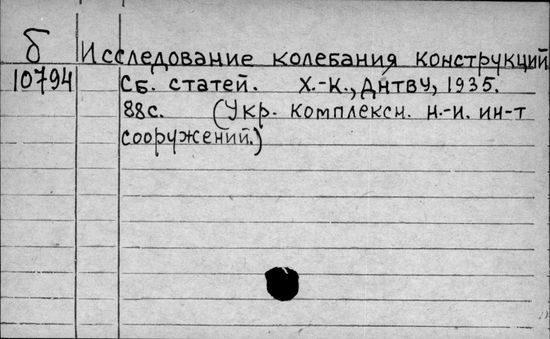 б Исследование колебания конструкций
10794 Сб. статей. Х.-К., ДНТВУ, 1935.
88с. (Укр. комплексн. н.-и. ин-т
сооружений.)